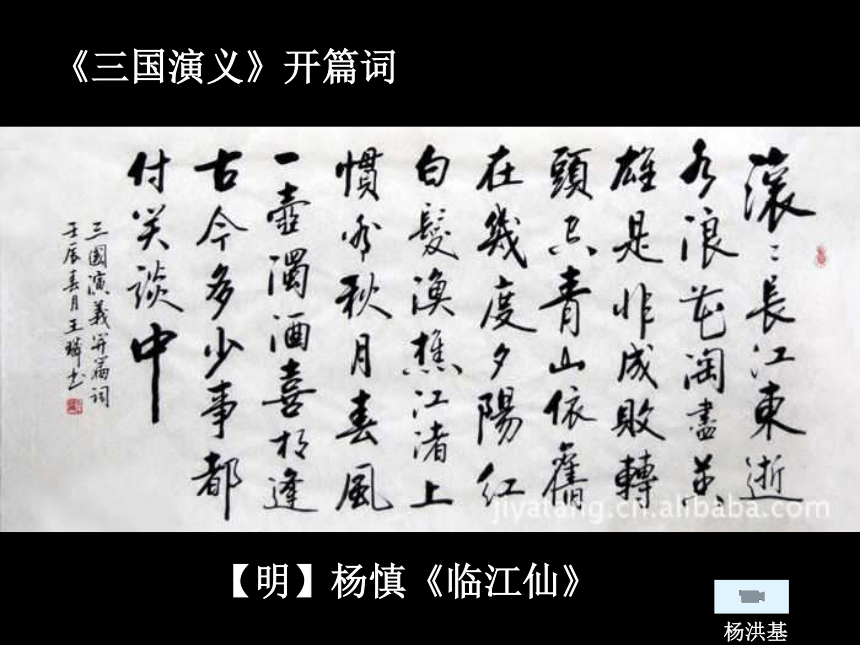 《三国演义》开篇词
滚〻長江東逝
水浪花淘盡英
雄是非成敗轉
頭空青山依舊
在幾度夕陽紅
白髮漁樵江渚上
慣看秋月春風
一壺濁酒喜相逢
古今多少事都
付笑談中
三國演義開篇詞
壬辰春月王
jiyatang.cn.alibaba.com
【明】杨慎《临江仙》
杨洪基